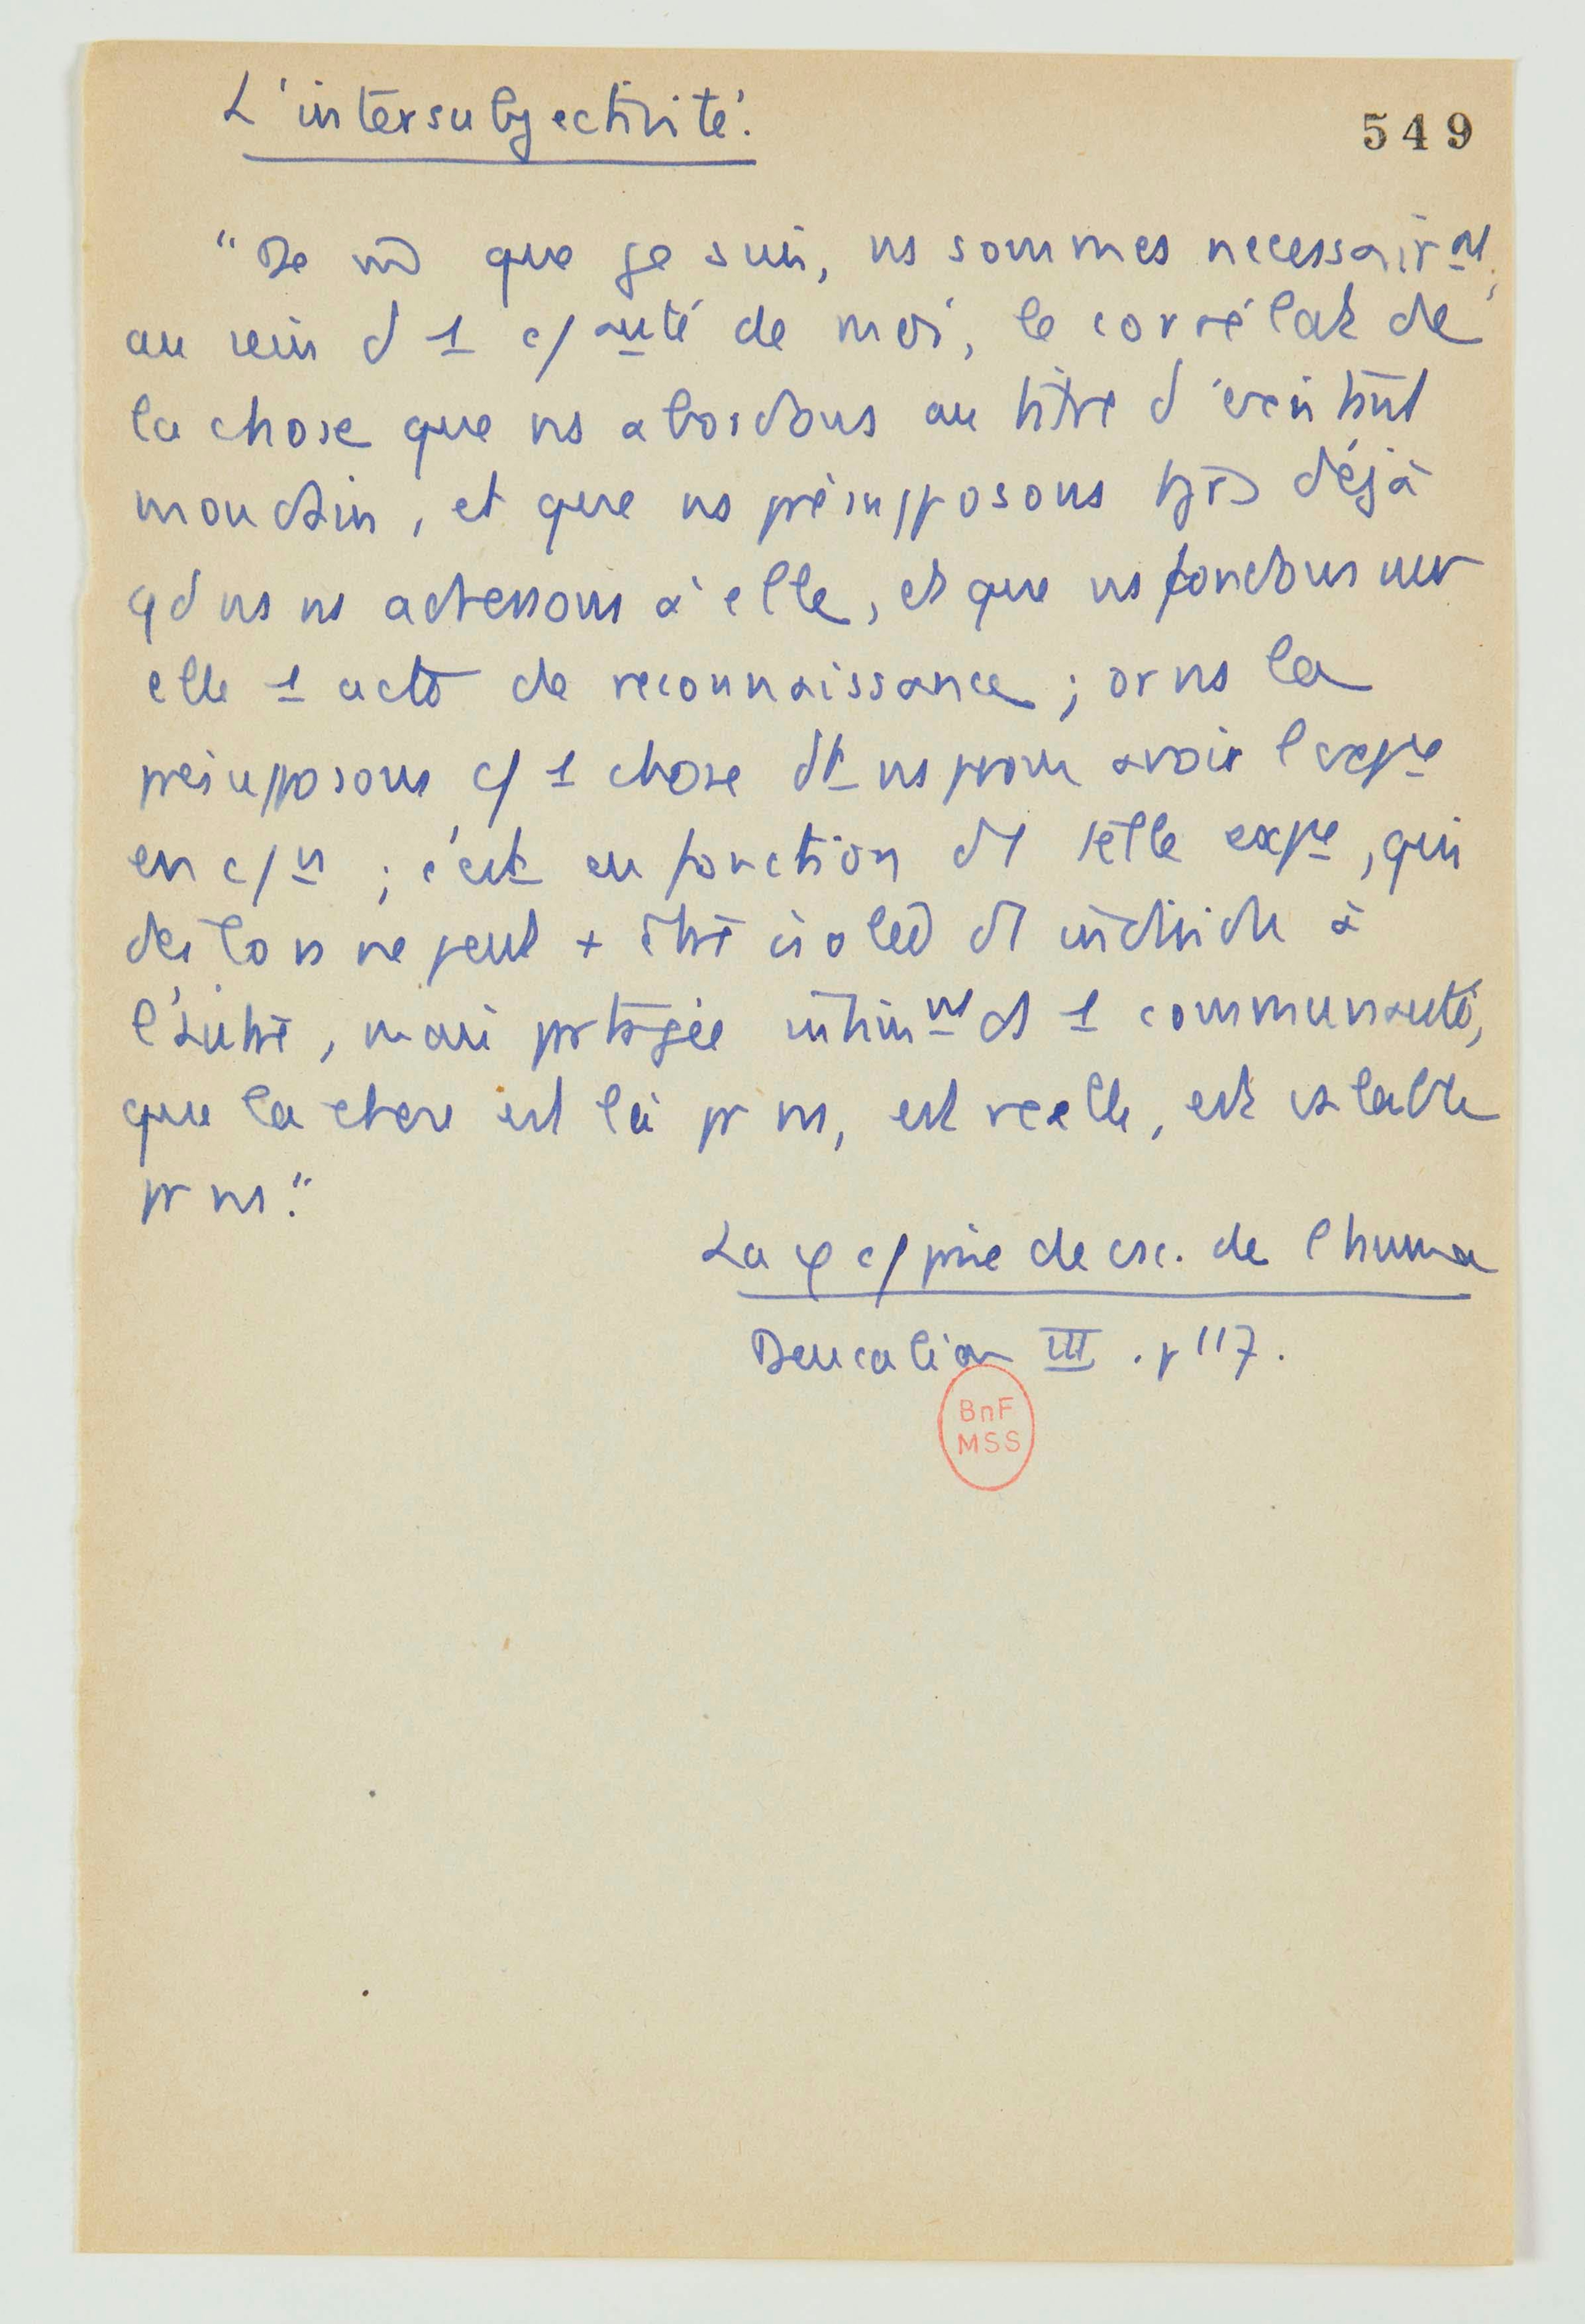 L'intersubjectivité.
549
"De m̄ que je suis, ns sommes necessairmt,
au sein d 1 c/auté de moi, le corrélat de
la chose que ns abordons au titre d'
mondain, et que ns présupposons tjrs déjà
qd ns ns adressons à elle, et que ns fondons sur
elle 1 acte de reconnaissance ; or ns la
présupposons c/ 1 chose dt ns pvons avoir l'expce
en c/n ; c'est en fonction d'1 telle expce, qui
dès lors ne peut + être isolée d'1 individu à
l'autre, mais partagée intimmt ds 1 communauté,
que la chose est là pr ns, est réelle, est valable
pr ns."
La φ c/ prise de csc. de l'huma
Deucalion III . p 117.
BnF
MSS